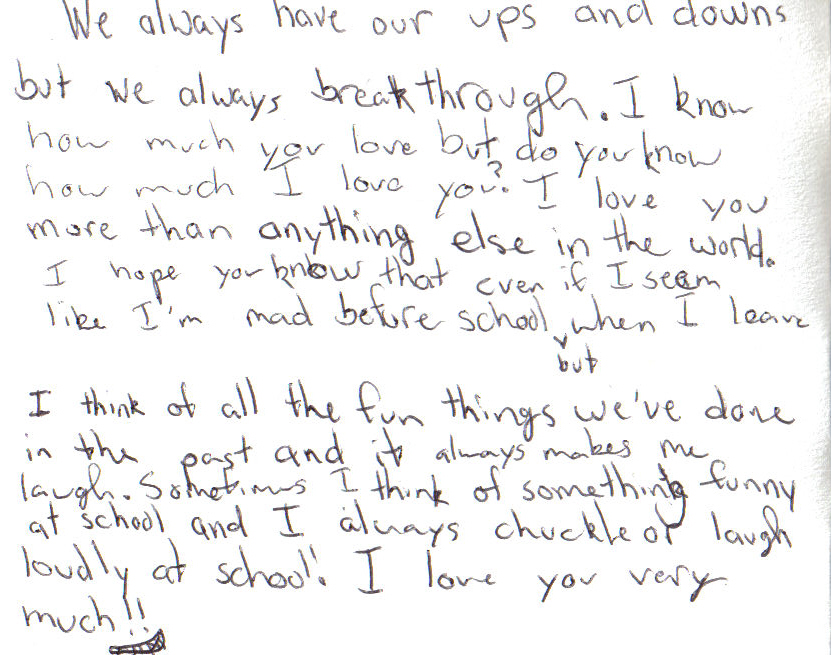 We always have our ups and downs
but we always break through. I know
how much you love but do you know
how much I love you? I love you
more than anything else in the world.
I hope you know that even if I seem
like I'm mad before school, when I leave
but
I think of all the fun things we've done
in the past and it always makes me
laugh. Sometimes I think of something funny
at school and I always chuckle or laugh
loudly at school! I love you very
much!!